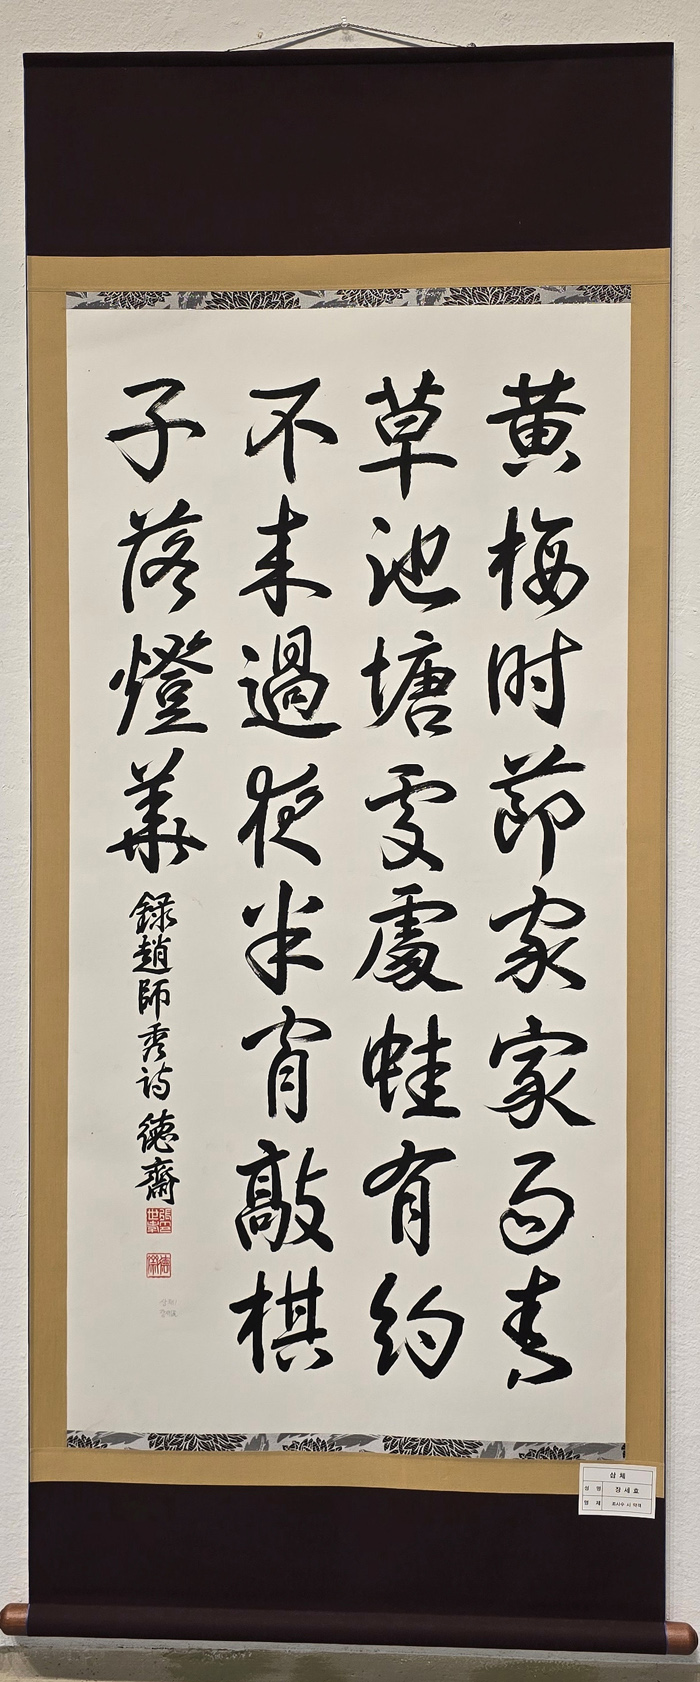 黄梅时節家家雨青
草池塘處處蛙有約
不来過夜半閒敲棋
子落燈華
録趙師秀詩 德齋
삼 체
성 명 장 세 효
명 제 조사수 시 약객